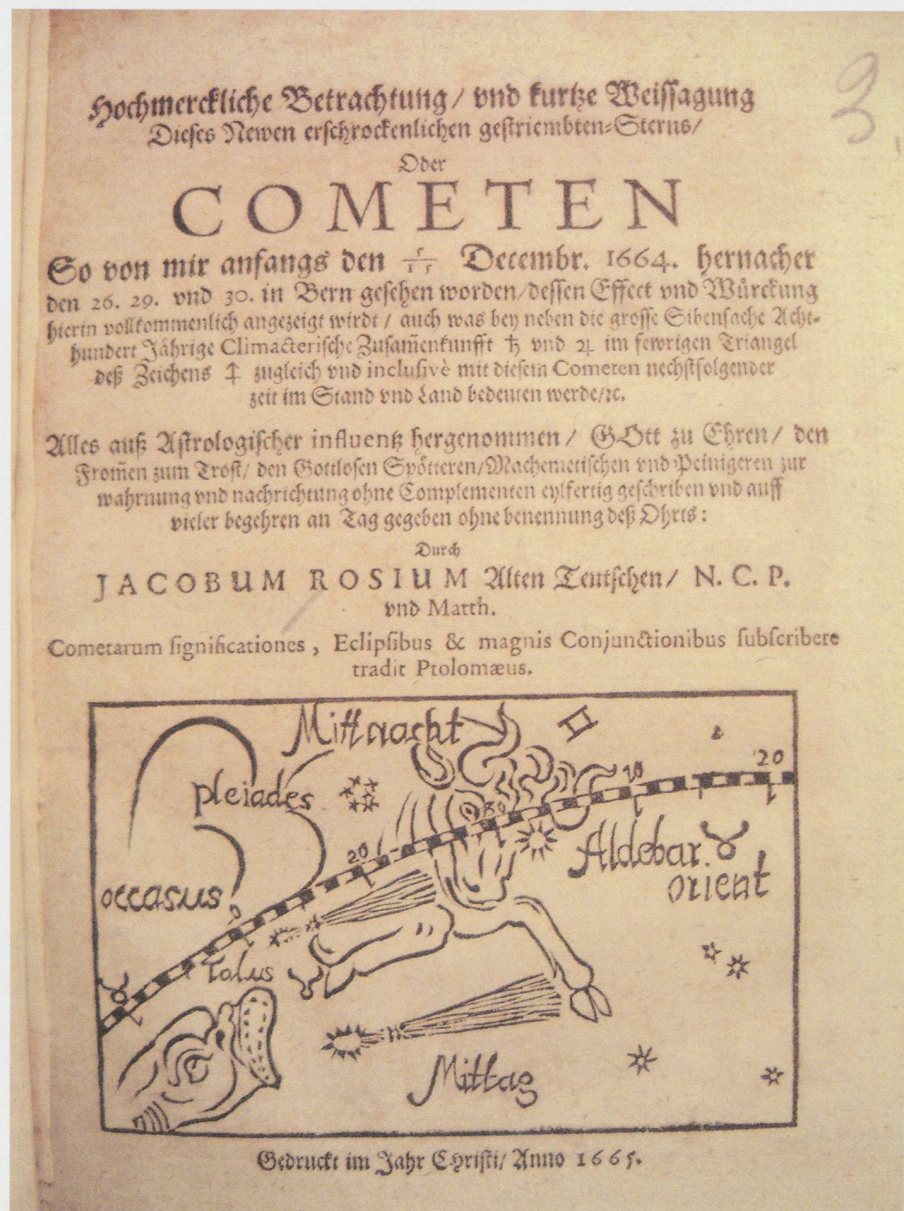 3.
Hochmerckliche Betrachtung / vnd kurtze Weissagung
Dieses Newen erschrockenlichen gestriembten-Sterns /
Oder
COMETEN
So von mir anfangs den 5/15 Decembr. 1664. hernacher
den 26. 29. vnd 30. in Bern gesehen worden / dessen Effect vnd Würckung
hierin vollkommenlich angezeigt wirdt / auch was bey neben die grosse Sibenfache Acht-
hundert Jährige Climacterische Zusam̃enkunfft ♄ vnd ♃ im fewrigen Triangel
deß Zeichens ♐ zugleich vnd inclusivè mit diesem Cometen nechstfolgender
zeit im Stand vnd Land bedeuten werde / ꝛc.
Alles auß Astrologischer influentz hergenommen / GOtt zu Ehren / den
From̃en zum Trost / den Gottlosen Spötteren / Machemetischen vnd Peinigeren zur
wahrnung vnd nachrichtung ohne Complementen eylfertig geschriben vnd auff
vieler begehren an Tag gegeben ohne benennung deß Ohrts :
Durch
JACOBUM ROSIUM Alten Teutschen / N. C. P.
vnd Matth.
Cometarum significationes , Eclipsibus & magnis Conjunctionibus subscribere
tradit Ptolomæus.
Mittnacht ♊
pleiades
10 20
30
20
Aldebar. ♉
orient
occasus
Talus
♉
Mittag
Gedruckt im Jahr Christi / Anno 1665.